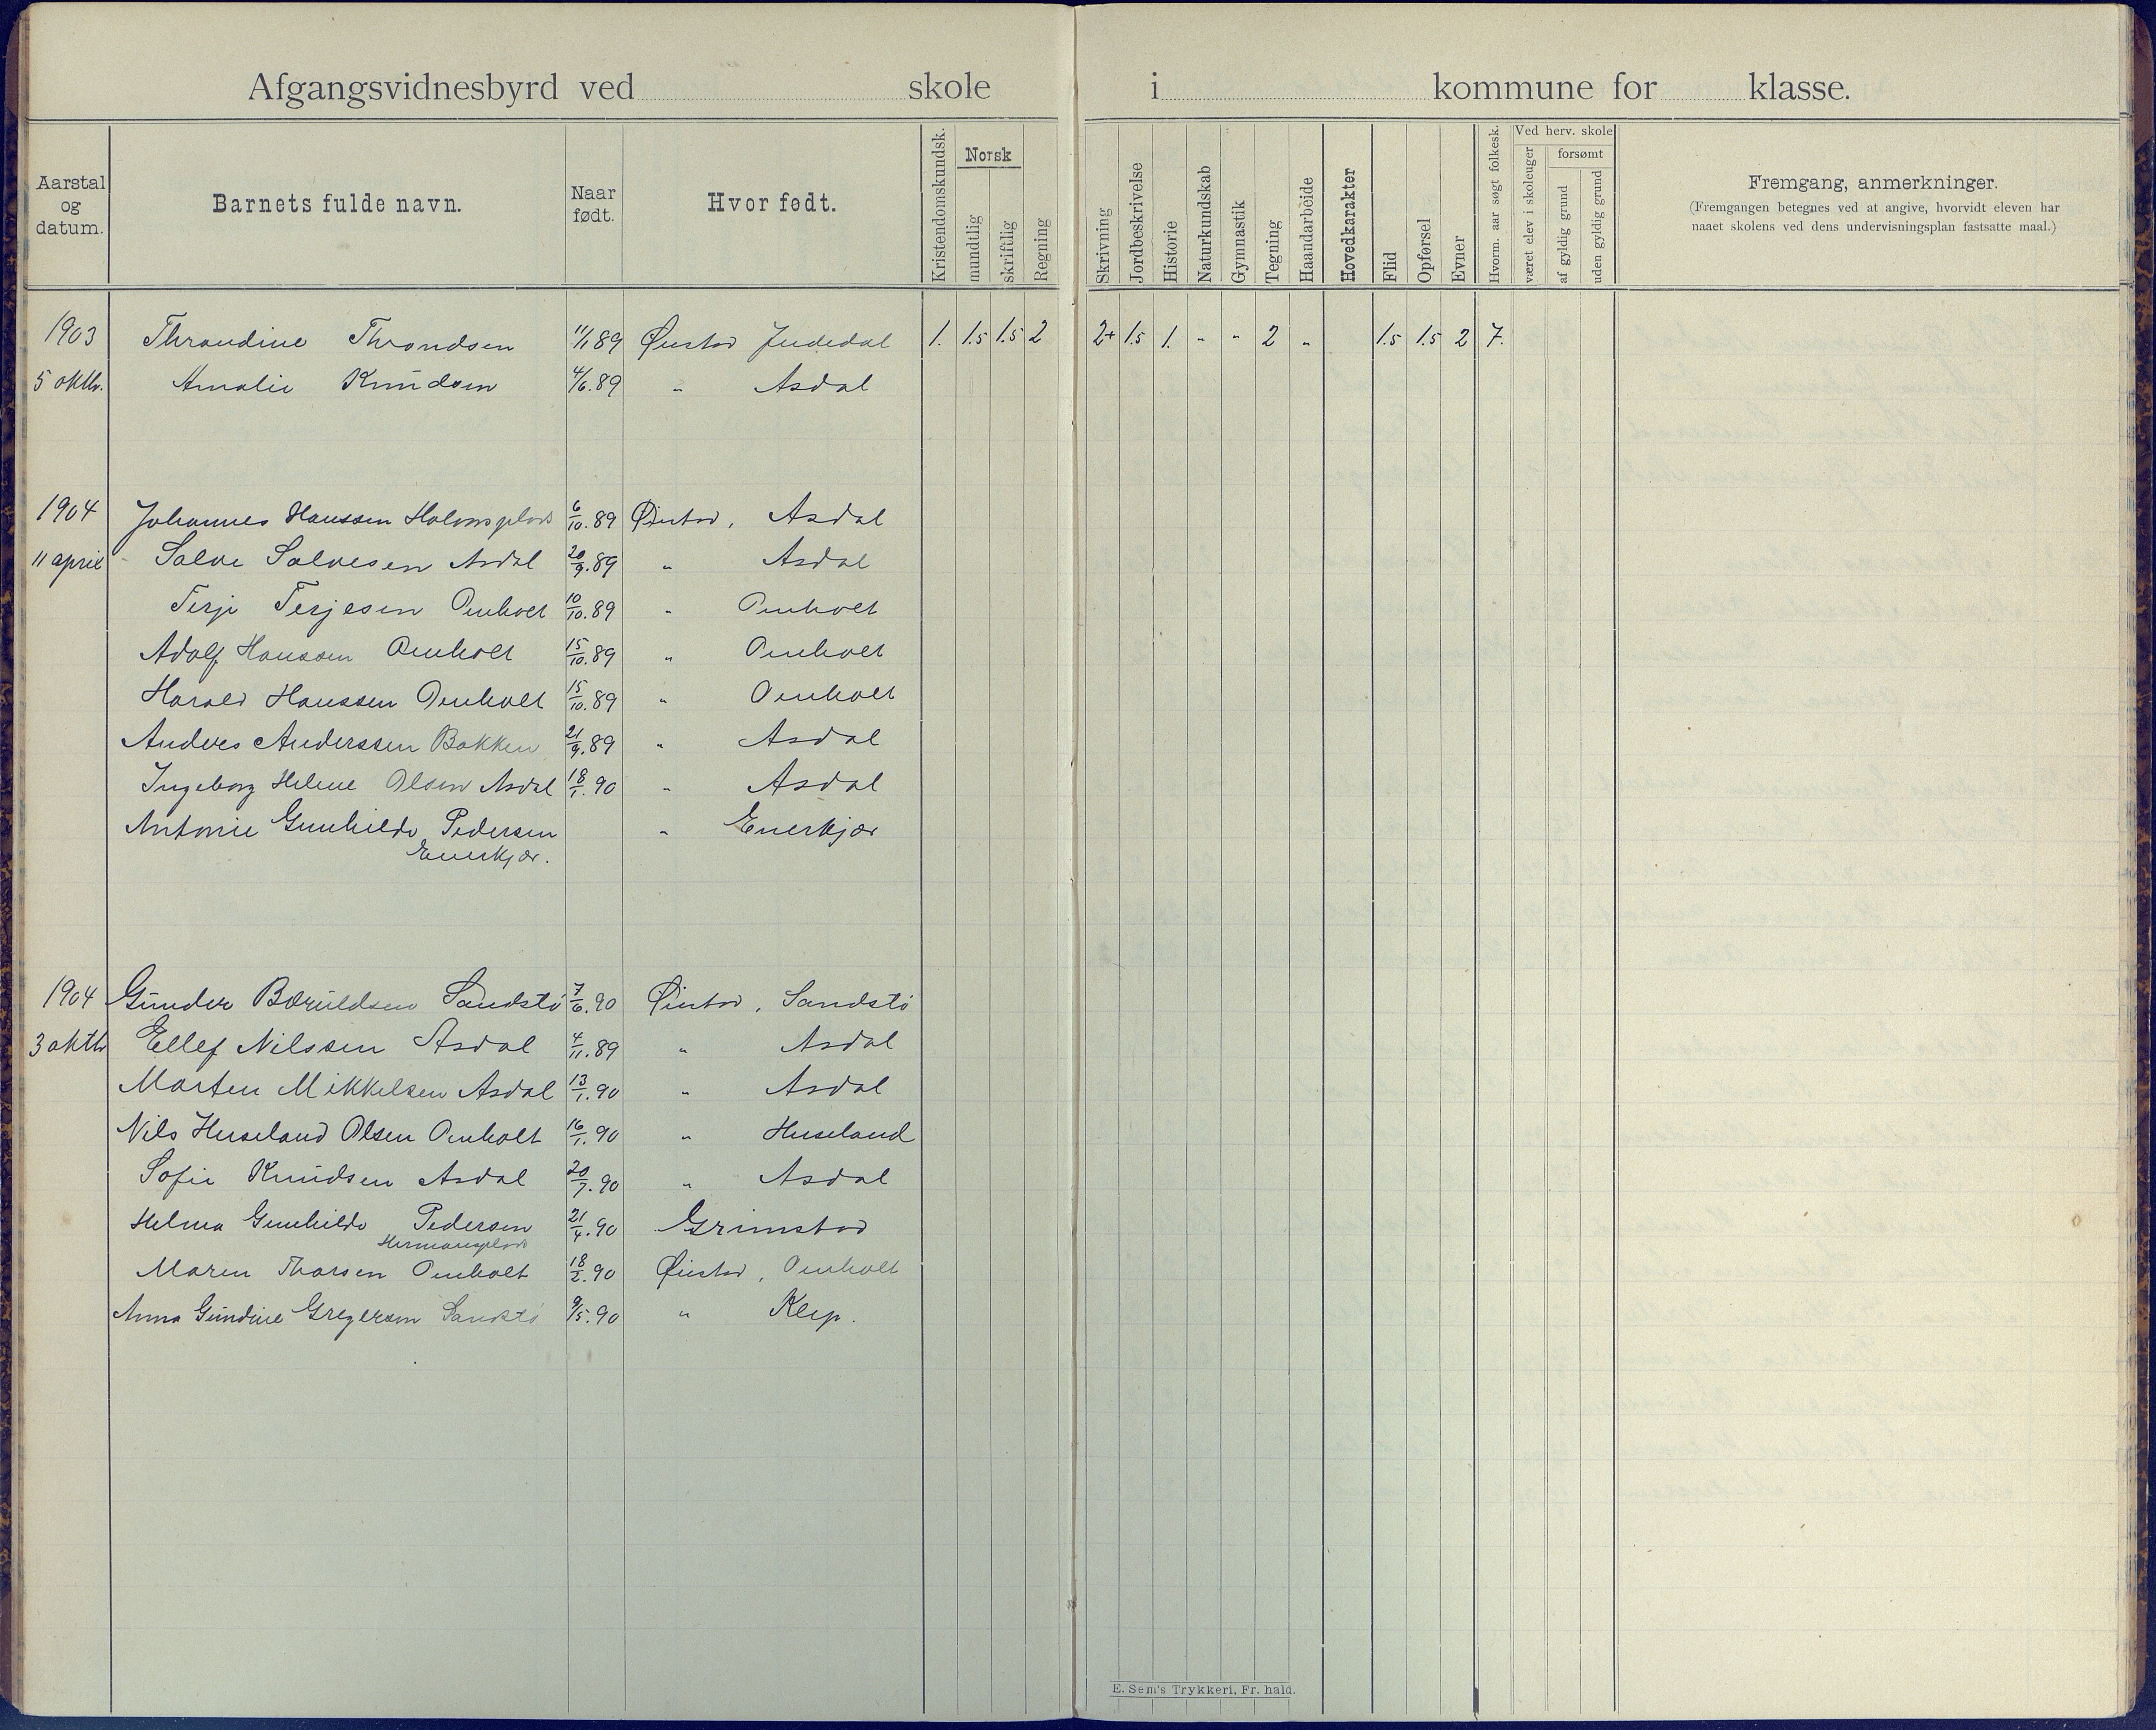 Afgangsvidnesbyrd ved skole i kommune for klasse.
Aarstal og datum.
Barnets fulde navn.
Naar født.
Hvor født.
Kristendomskundsk.
Norsk
mundtlig
skriftlig
Regning
Skrivning
Jordbeskrivelse
Historie
Naturkundskab
Gymnastik
Tegning
Haandarbeide
Hovedkarakter
Flid
Opførsel
Evner
Hvorm. aar søgt folkesk.
Ved herv. skole
været elev i skoleuger
forsømt
af gyldig grund
uden gyldig grund
Fremgang, anmerkninger.
(Fremgangen betegnes ved at angive, hvorvidt eleven har
naaet skolens ved dens undervisningsplan fastsatte maal.)
1903 Throndine Throndsen 11/1 89 Øiestad Judedal 1. 1.5 1.5 2 2+ 1.5 1. " " 2 " 1.5 1.5 2 7.
5 oktb. Amalie Knudsen 4/6.89 " Asdal
1904 Johannes Hanssen Holmsplads 6/10.89 Øiestad, Asdal
11 april Salve Salvesen Asdal 20/9.89 " Asdal
Terje Terjesen Omholt 10/10.89 " Omholt
Adolf Hanssen Omholt 15/10.89 " Omholt
Harald Hanssen Omholt 15/10.89 " Omholt
Anders Anderssen Bakken 21/9.89 " Asdal
Ingeborg Helene Olsen Asdal 18/1.90 " Asdal
Antonie Gunhilde Pedersen " Enerkjær
Enerkjær.
1904 Gunder Bæruldsen Sandstø 7/6.90 Øiestad, Sandstø
3 oktb Ellef Nilssen Asdal 4/11.89 " Asdal
Morten Mikkelsen Asdal 13/1.90 " Asdal
Nils Huseland Olsen Omholt 16/1.90 " Huseland
Sofie Knudsen Asdal 20/7.90 " Asdal
Helma Gunhilde Pedersen 21/4.90 Grimstad
Hermansplads
Maren Thorsen Omholt 18/2.90 Øiestad, Omholt
Anna Gundine Gregersen Sandstø 9/5.90 " Klep.
E. Sem's Trykkeri, Fr. hald.